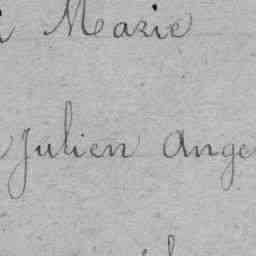 Marie
Julien Ange